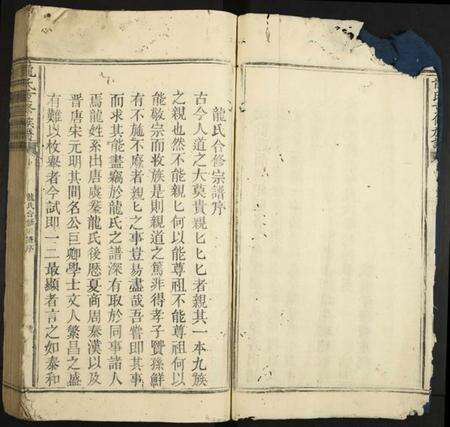 龍氏合修宗譜序
古今人道之大莫貴親匕匕者親其一本九族
之親也然不能親匕何以能尊祖不能尊祖何以
能敬宗而收族是則親道之篤非得孝子賢孫鮮
有不施不靡者親匕之事豈易盡哉吾嘗即其事
而求其能盡竊於龍氏之譜深有取於同事諸人
焉龍姓系出唐虞夔龍氏後歷夏商周秦漢以及
晉唐宋元明其間名公巨卿學士文人繁昌之盛
有難以枚舉者今試即一二最顯者言之如泰和
龍氏合修宗譜序